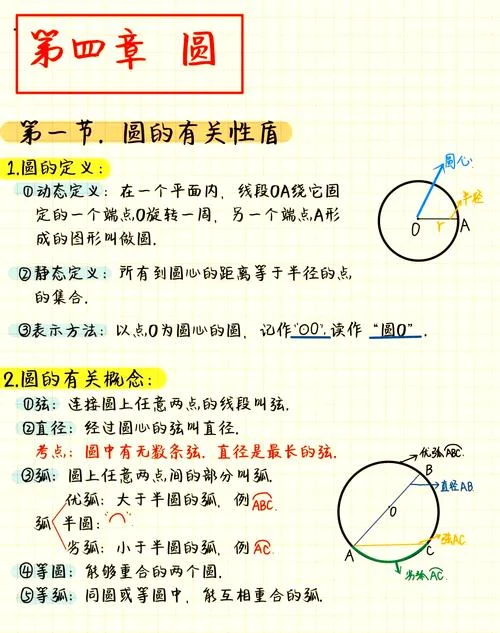 第四章 圆
第一节. 圆的有关性盾
1.圆的定义:
①动态定义: 在一个平面内, 线段OA绕它固
定的一个端点O旋转一周, 另一个端点A形
成的图形叫做圆.
圆心
半径
O
r
A
②静态定义: 所有到圆心的距离等于半径的点
的集合.
③表示方法: 以点O为圆心的圆, 记作"⊙O", 读作 "圆O".
2.圆的有关概念:
①弦: 连接圆上任意两点的线段叫弦.
②直径: 经过圆心的弦叫直径.
考点: 圆中有无数条弦. 直径是最长的弦.
③弧: 圆上任意两点间的部分叫弧.
弧
优弧: 大于半圆的弧, 例ABC
半圆:
劣弧: 小于半圆的弧, 例AC
④等圆: 能够重合的两个圆.
⑤等弧: 同圆或等圆中, 能互相重合的弧.
优弧ABC
B
直径AB
O
A
C
弦AC
劣弧AC